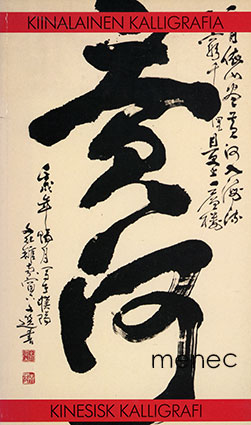 KIINALAINEN KALLIGRAFIA
白日依山盡黄河入海流
窮千里目更上一層樓
黄河
menec
KINESISK KALLIGRAFI